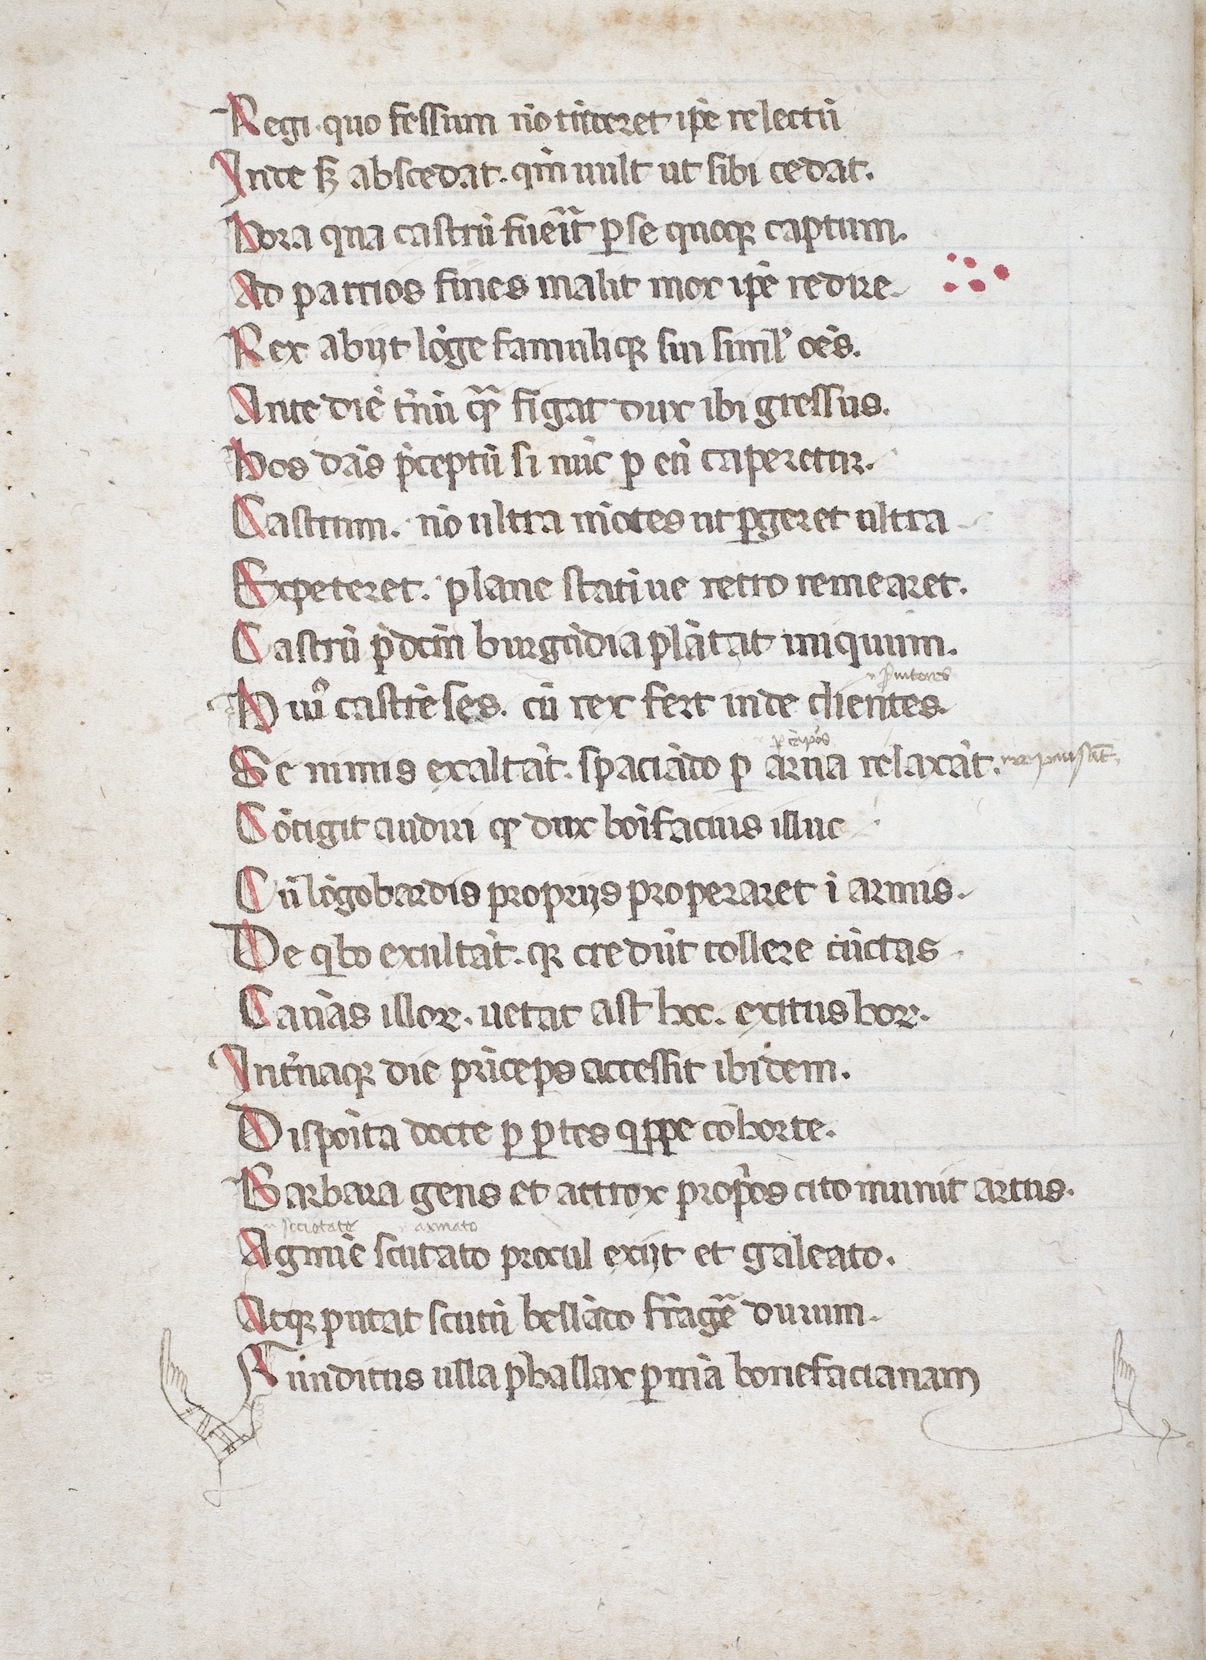 Regi. quo fessum nō tīderet ip̄e relectū
Inde sȝ abscedat. qm̄ uult ut sibi cedat.
Hora qua castrū fueīt̃ ꝑ se quoqꝫ captum.
Ad patrios fines malit mox ip̄e redire.
Rex abijt lōge famuliqꝫ sui simil' oēs.
Ante diē t̃nū qꝫ̃ figat dux ibi gressus.
Hos dās p̄ceptū si nūc ꝑ eū caperetur.
Castrum. nō ultra mōtes ut ꝑgeret ultra
Expeteret. plane statiue retro remearet.
Castrū p̄dcm̄ burgūdia plātat iniquum.
n ꝓuitores
Hiu̾ castrēses. cū rex fert inde clientes.
ꝑ cāpos
Se nimis exaltāt. spaciādo ꝑ arua relaxāt.
Cōtigit audiri qꝫ dux bonifacius illuc
Cū lōgobardis proprijs properaret ī armis.
De qͥbꝰ exultāt. qꝫ credūt tollere cūctas
Cannas illoꝝ. uetat ast hoc. exitus hoꝝ.
Int̃naqꝫ die prīceps accessit ibidem.
Disposita docte ꝑ ꝑtes qͥppe cohorte.
Barbara gens et attrox prop̃os cito munit artus.
n societate armato
Agmīe scutato procul exijt et galeato.
Atqꝫ putat scutū bellādo frāgẽ durum.
Funditus ulla ꝑhallax ꝑ mā bonefacianam